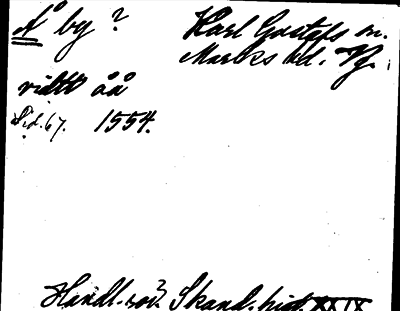 Å by ? Karl Gustafs sn.
Marks hd. Vg.
vidtt åå
Sid. 67. 1554.
Handl. rör. Skand. hist. XXIX